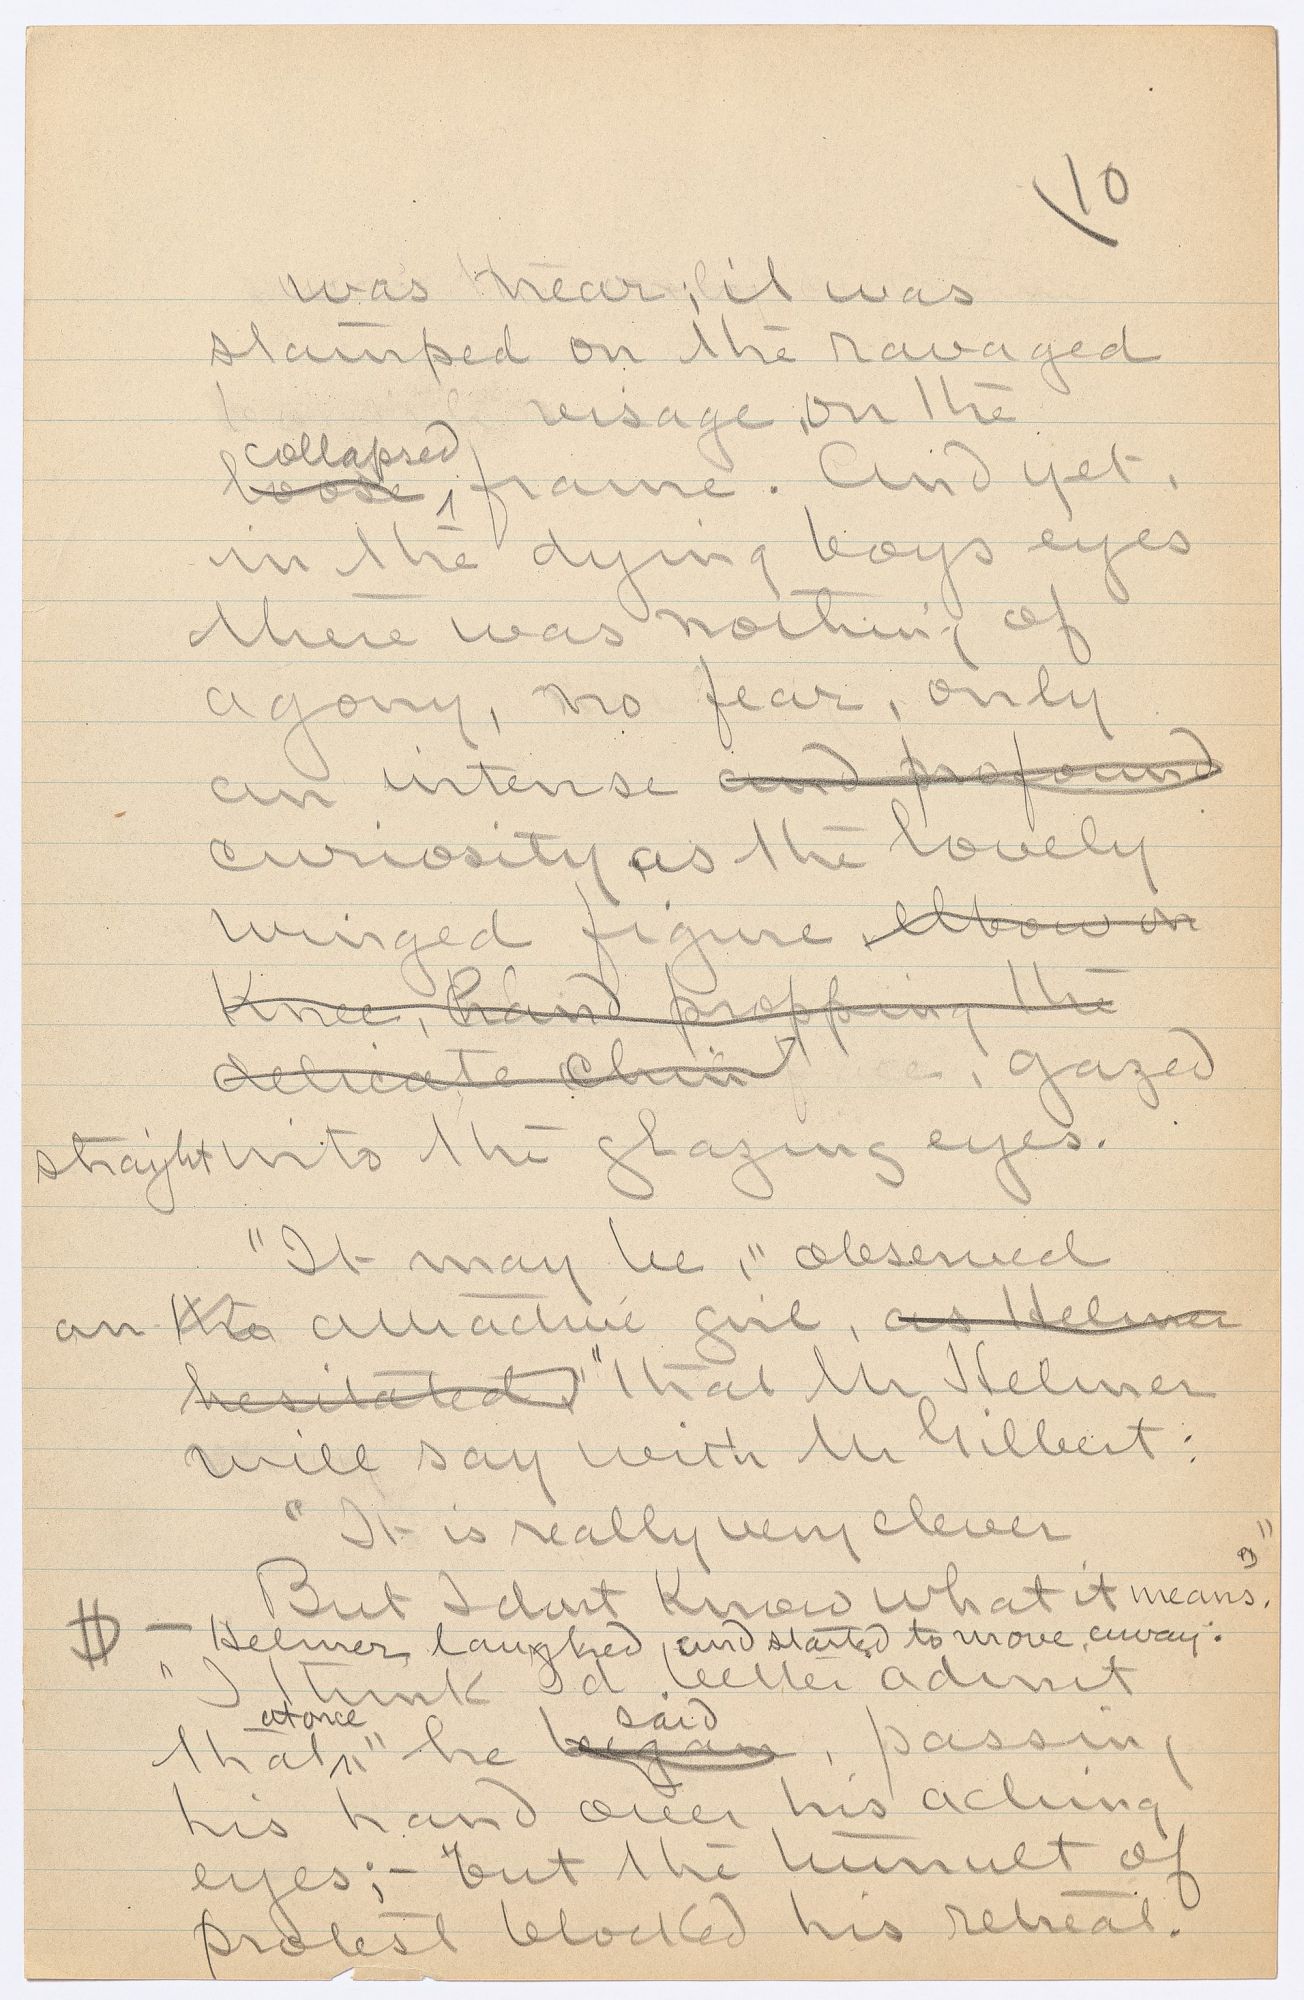 10
was near; it was
stamped on the ravaged
visage, on the
collapsed
loose, frame. And yet,
in the dying boys eyes
there was nothing of
agony, no fear, only
an intense and profound
curiosity, as the lovely
winged figure, elbow on
knee, hand propping the
delicate chin, gazed
straight into the glazing eyes.
"It may be," observed
an attractive girl, as Helmer
hesitated, "that Mr Helmer
will say with Mr Gilbert:
"It is really very clever
But I dont know what it means."
- Helmer laughed, and started to move away.
"I think I'd better admit
at once said
that," he began, passing
his hand over his aching
eyes;- but the tumult of
protest blocked his retreat.